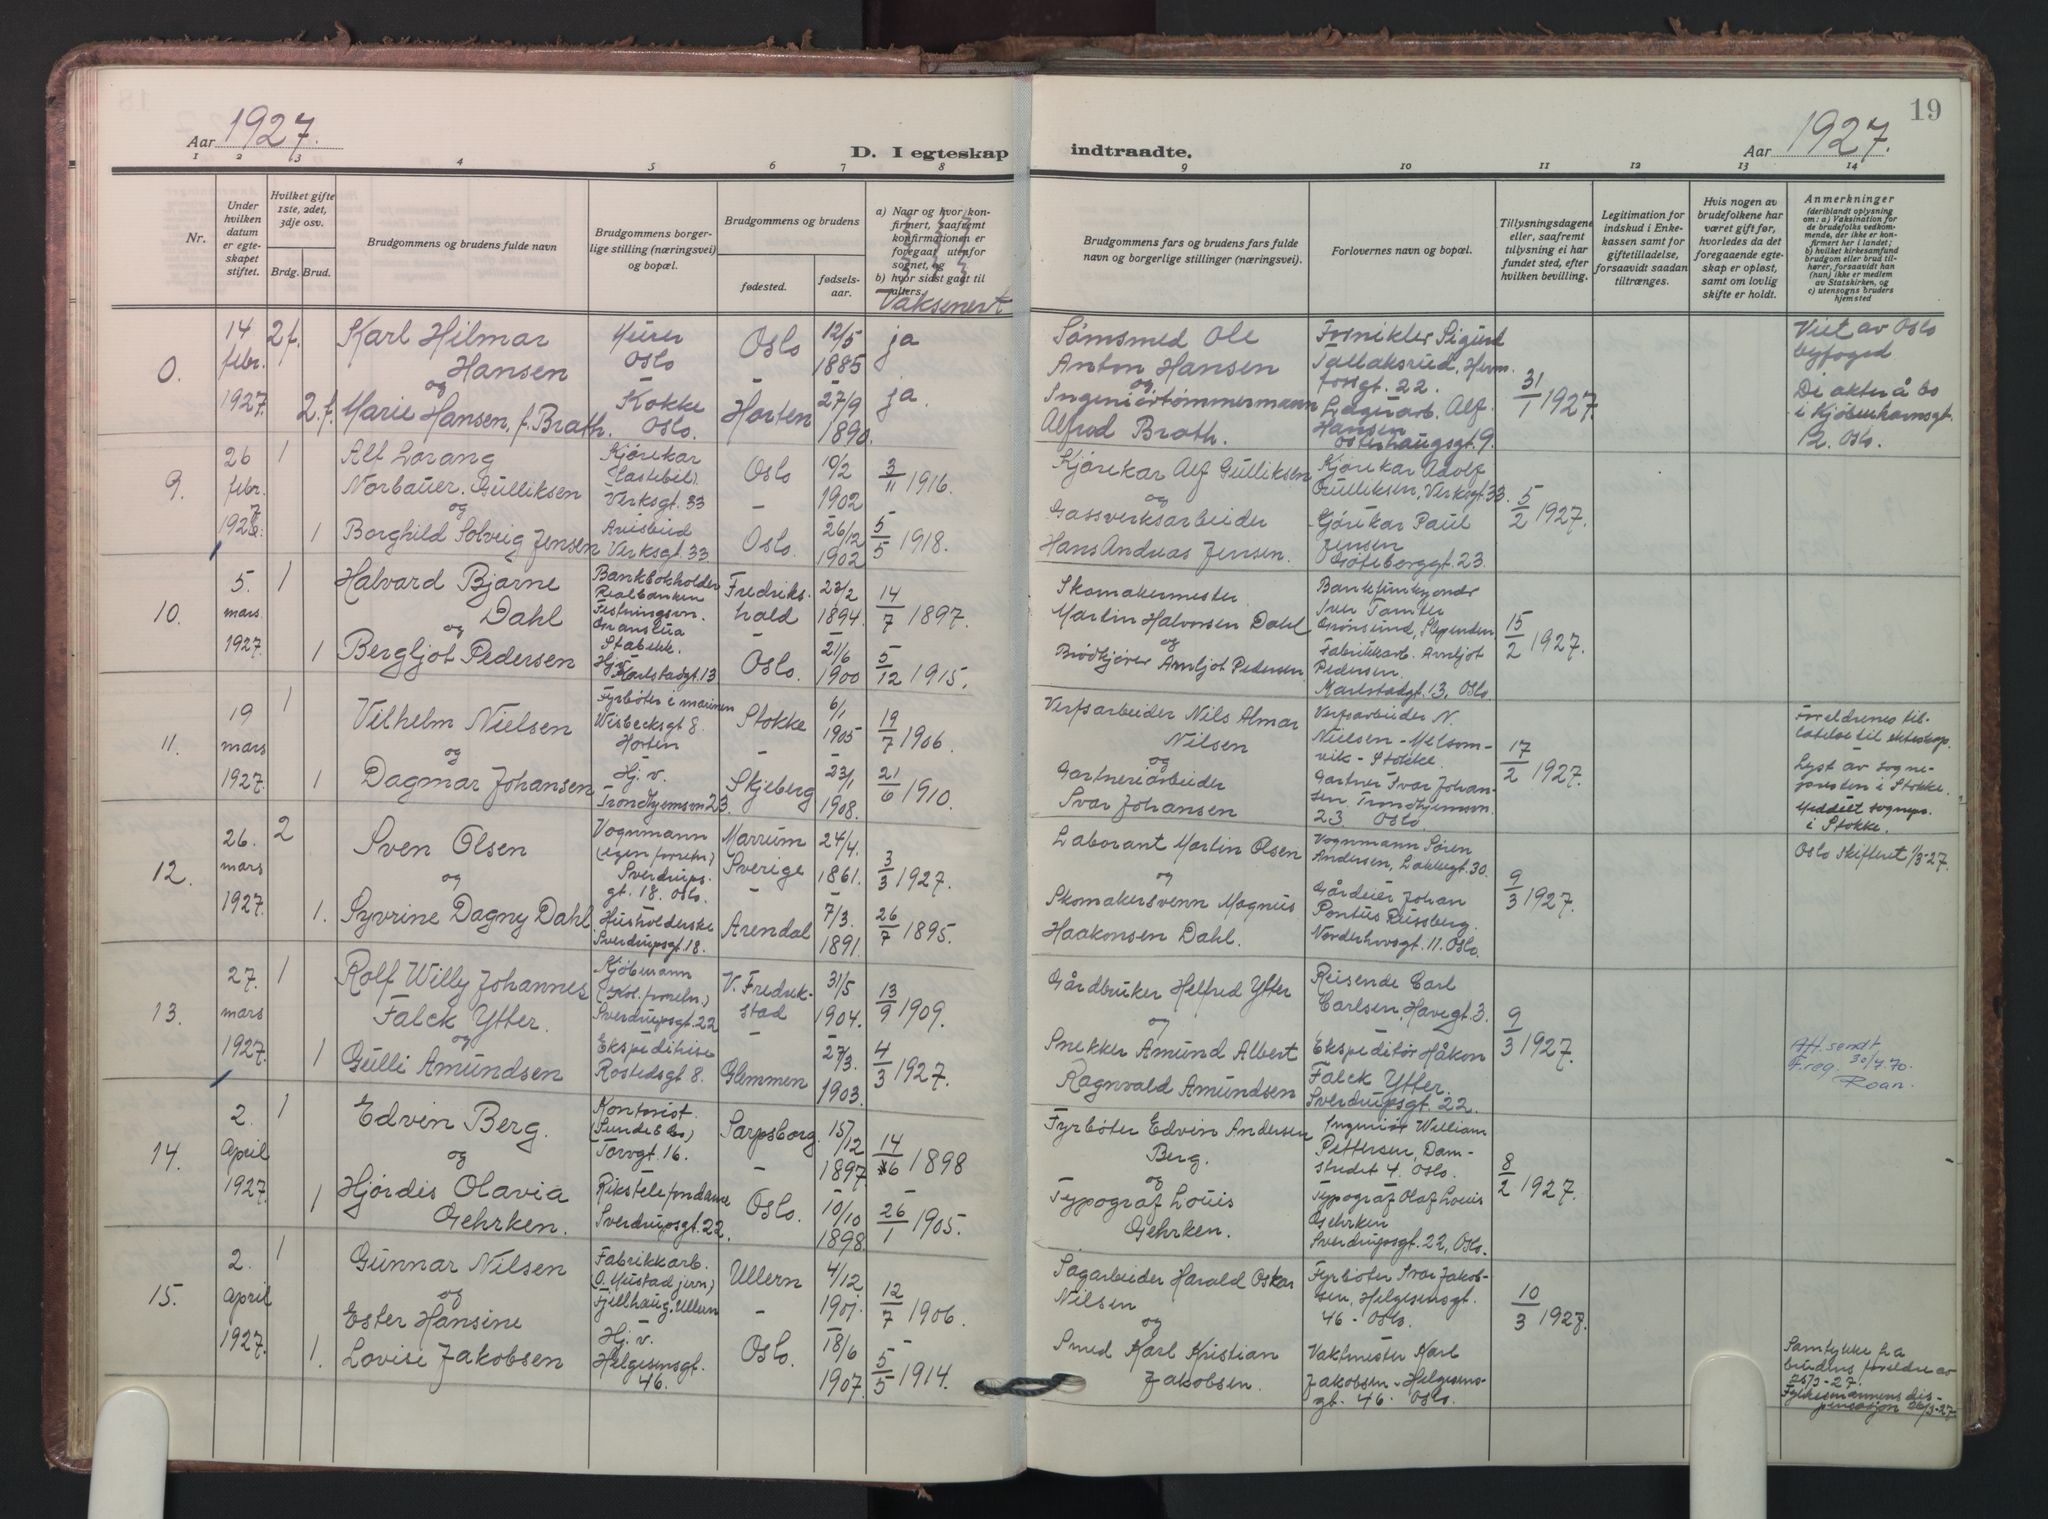 Aar 1927.
D. I egteskap
indtraadte.
Aar 1927.
19
1 2 3 4 5 6 7 8
9 10 11 12 13 14
Nr.
Under hvilken datum er egteskapet stiftet.
Hvilket gifte 1ste, 2det, 3dje osv.
Brdg. Brud.
Brudgommens og brudens fulde navn
Brudgommens borgerlige stilling (næringsvei) og bopæl.
Brudgommens og brudens
fødested.
fødselsaar.
a) Naar og hvor konfirmert, saafremt konfirmationen er foregaat utenfor sognet, og
b) hvor sidst gaat til alters.
Vaksinert
Brudgommens fars og brudens fars fulde navn og borgerlige stillinger (næringsvei).
Forlovernes navn og bopæl.
Tillysningsdagene eller, saafremt tillysning ei har fundet sted, efter hvilken bevilling.
Legitimation for indskud i Enkekassen samt for giftetilladelse, forsaavidt saadan tiltrænges.
Hvis nogen av brudefolkene har været gift før, hvorledes da det foregaaende egteskap er opløst, samt om lovlig skifte er holdt.
Anmerkninger
(deriblandt oplysning om: a) Vaksination for de brudefolks vedkommende, der ikke er konfirmert her i landet; b) hvilket kirkesamfund brudgom eller brud tilhører, forsaavidt han (hun) ikke er medlem av Statskirken, og c) utensogns bruders hjemsted
0. 14 febr. 1927. 2f.
Karl Hilmar Hansen
Murer Oslo
Oslo
12/5 1885
ja
og
2.f. Marie Hansen, f. Brath.
Kokke Oslo.
Horten
27/9 1890.
ja.
Sømsmed Ole Anton Hansen
og
Alfred Brath.
31/1 1927.
Viet av Oslo byfoged
De akter å bo i Kjøbenhavnsgt. 12. Oslo.
9. 26 febr. 1927 1
Alf Lorang Norbauer. Gulliksen
Kjørekar (lastebil) Verksgt. 33
Oslo
10/2 1902
3/11 1916.
og
1 Borghild Solveig Jensen
Avisbud Verksgt. 33
Oslo.
26/12 1902
5/5 1918.
Kjørekar Alf Gulliksen
og
Gassverksarbeider Hans Andreas Jensen.
Kjørekar Adolf Gulliksen, Verksgt. 33.
Kjørekar Paul Jensen Göteborggt. 23.
5/2 1927.
10. 5. mars 1927. 1
Halvard Bjarne Dahl
Bankbokholder Realbanken
Stabekk.
Fredrikshald
23/2 1894.
14/7 1897.
og
1 Bergljot Pedersen
Hj.v. Karlstadgt. 13
Oslo.
21/6 1900
5/12 1915.
Skomakermester Martin Halvorsen Dahl
og
Brødkjører Arnljot Pedersen
Iver Tamter Grønsund, Slependen
Fabrikkarb. Arnljot Pedersen. Karlstadgt. 13, Oslo
15/2 1927.
11. 19 mars 1927. 1
Vilhelm Nielsen
Fyrbøter i marinen Wisbecksgt 8. Horten
Stokke
6/1 1905
19/7 1906.
og
1 Dagmar Johansen
Hj. v. Trondhjemsvn 23.
Skjeberg
23/1 1908.
21/6 1910.
Verfsarbeider Nils Almar Nilsen
og
Gartneriarbeider Ivar Johansen
Verfsarbeider N. Nielsen - Melsomvik - Stokke.
Gartner Ivar Johansen. Trondhjemsvn. 23 Oslo.
17/2 1927.
Foreldrenes tilatelse til ekteskap.
Lyst av sognepresten i Stokke.
Meddelt sognepr. i Stokke.
12. 26. mars 1927. 2
Sven Olsen
Vognmann (egen forretn.) Sverdrupsgt. 18. Oslo.
Marrum Sverige
24/4. 1861.
3/3 1927.
og
1. Syvrine Dagny Dahl
Husholderske Sverdrupsgt. 18.
Arendal
7/3. 1891.
26/7 1895.
Laborant Martin Olsen
og
Skomakersvenn Magnus Haakonsen Dahl.
Vognmann Søren Andersen, Lakkegt. 30.
Gårdeier Johan Pontus Russberg. Norderhovsgt. 11. Oslo.
9/3 1927.
Oslo skifteret 1/3-27.
13. 27. mars 1927. 1
Rolf Willy Johannes Falck Ytter.
Kjøbmann Sverdrupsgt. 22
V. Fredrikstad
31/5 1904.
13/9 1909.
og
1 Gulli Amundsen
Ekspeditrise Rostedsgt 8.
Glemmen
27/3. 1903.
4/3 1927.
Gårdbruker Helfred Ytter
og
Snekker Amund Albert Ragnvald Amundsen
Reisende Carl Carlsen, Havegt. 3.
Ekspeditør Håkon Falck Ytter. Sverdrupsgt. 22.
9/3 1927.
Att. sendt F.reg. 30/7.70. Roan.
14. 2. April 1927. 1
Edvin Berg.
Kontorist. (Sunde & Co) Torvgt. 16.
Sarpsborg.
15/12 1897.
14/6 1898
og
1 Hjørdis Olavia Gehrken.
Rikstelefondame Sverdrupsgt. 22.
Oslo.
10/10 1898.
26/1 1905.
Fyrbøter Edvin Andersen Berg.
og
Typograf Louis Gehrken.
Ingeniør William Pettersen, Damstredet 4. Oslo.
Typograf Olaf Louis Gehrken Sverdrupsgt. 22, Oslo.
8/2 1927.
15. 2. April 1927. 1
Gunnar Nilsen
Fabrikkarb. (O. Mustad jern) Fjellhaug. Ullern
Ullern
4/12 1901.
12/7 1906.
og
1. Ester Hansine Lovise Jakobsen
Hj. v. Helgesensgt. 46.
Oslo.
18/6 1907.
5/5 1914.
Sagarbeider Harald Oskar Nilsen
og
Smed Karl Kristian Jakobsen.
Fyrbøter Ivar Jakobsen, Helgesensgt. 46 - Oslo.
Vaktmester Karl Jakobsen - Helgesensgt. 46. Oslo.
10/3 1927.
Samtykke fra brudens foreldre av 25/3-27.
Fylkesmannens dispensasjon 26/3-27.